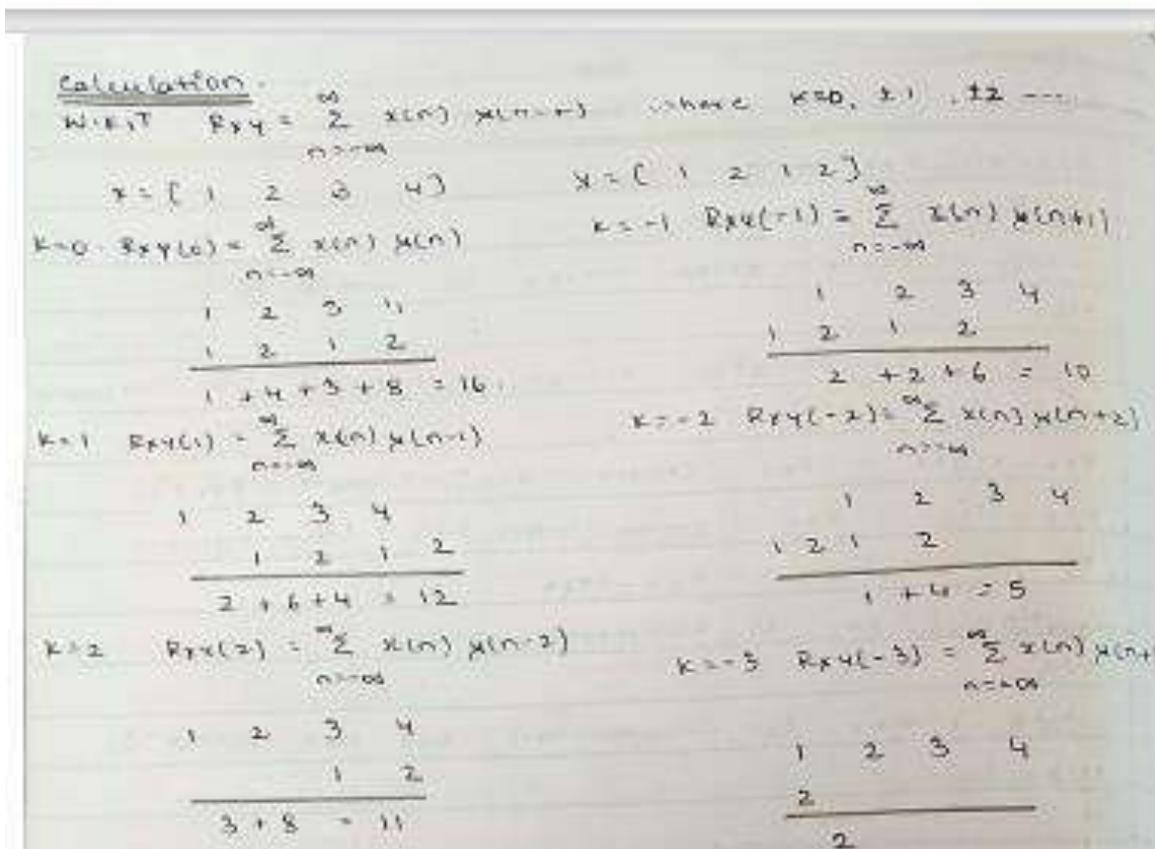 Calculation.
W.K.T Rxy = ∞ Σ n=-∞ x(n) y(n-k) where k=0, ±1, ±2 ----
x = [ 1 2 3 4]
k=0 Rxy(0) = ∞ Σ n=-∞ x(n) y(n)
1 2 3 4
1 2 1 2
1 + 4 + 3 + 8 = 16
k=1 Rxy(1) = ∞ Σ n=-∞ x(n) y(n-1)
1 2 3 4
1 2 1 2
2 + 6 + 4 = 12
k=2 Rxy(2) = ∞ Σ n=-∞ x(n) y(n-2)
1 2 3 4
1 2
3 + 8 = 11
y = [ 1 2 1 2]
k=-1 Rxy(-1) = ∞ Σ n=-∞ x(n) y(n+1)
1 2 3 4
1 2 1 2
2 + 2 + 6 = 10
k=-2 Rxy(-2) = ∞ Σ n=-∞ x(n) y(n+2)
1 2 3 4
1 2 1 2
1 + 4 = 5
k=-3 Rxy(-3) = ∞ Σ n=-∞ x(n) y(n+
1 2 3 4
2
2